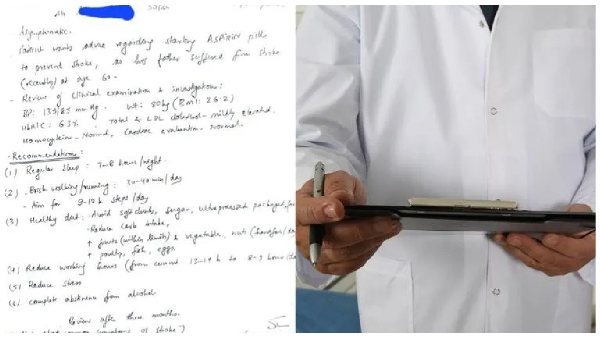 Asymptomatic.
Patient wants advice regarding starting Aspirin pills
to prevent stroke, as his father suffered from stroke
(recently) at age 60.
- Review of clinical examination & investigations:
BP: 135/85 mm Hg. Wt: 80kg (BMI: 26.2)
HbA1C: 6.3%. Total & LDL cholesterol - mildly elevated.
Homocysteine - Normal, Cardiac evaluation - Normal.
- Recommendations:
(1) Regular sleep: 7-8 hours/night.
(2) Brisk walking/running: 30-40 min/day
- Aim for 8-10 k steps/day
(3) Healthy diet: Avoid soft drinks, sugar, ultraprocessed packaged
- Reduce carb intake,
+ fruits (within limits) & vegetables, nuts
+ poultry, fish, eggs
(4) Reduce working hours (from current 13-14 h to 8-9 hours/
(5) Reduce stress
(6) Complete abstinence from alcohol.
Review after three months.
of stroke?)